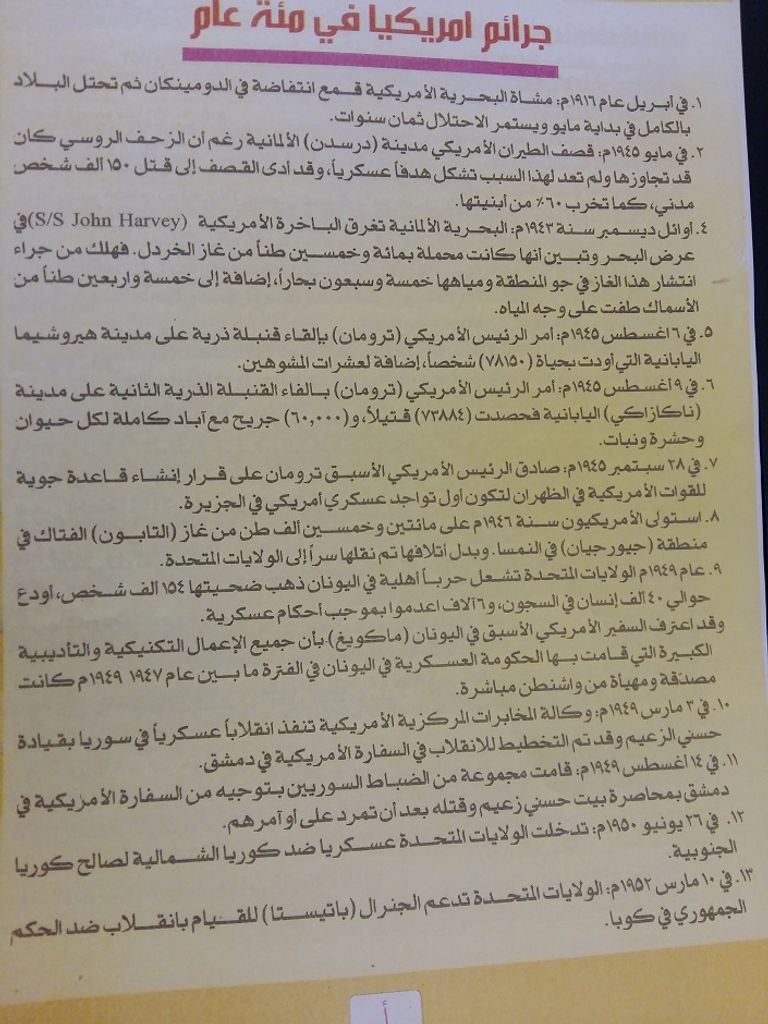 جرائم امريكيا في مئة عام
١. في أبريل عام ١٩١٦م: مشاة البحرية الأمريكية قمع انتفاضة في الدومينكان ثم تحتل البلاد
بالكامل في بداية مايو ويستمر الاحتلال ثمان سنوات.
٢. في مايو ١٩٤٥م: قصف الطيران الأمريكي مدينة (درسدن) الألمانية رغم أن الزحف الروسي كان
قد تجاوزها ولم تعد لهذا السبب تشكل هدفاً عسكرياً، وقد أدى القصف إلى قتل ١٥٠ ألف شخص
مدني، كما تخرب ٦٠٪ من أبنيتها.
٤. أوائل ديسمبر سنة ١٩٤٣م: البحرية الألمانية تغرق الباخرة الأمريكية (S/S John Harvey) في
عرض البحر وتبين أنها كانت محملة بمائة وخمسين طناً من غاز الخردل. فهلك من جراء
انتشار هذا الغاز في جو المنطقة ومياهها خمسة وسبعون بحاراً، إضافة إلى خمسة واربعين طناً من
الأسماك طفت على وجه المياه.
٥. في ٦ اغسطس ١٩٤٥م: أمر الرئيس الأمريكي (ترومان) بإلقاء قنبلة ذرية على مدينة هيروشيما
اليابانية التي أودت بحياة (٧٨١٥٠) شخصاً، إضافة لعشرات المشوهين.
٦. في ٩ أغسطس ١٩٤٥م: أمر الرئيس الأمريكي (ترومان) بالفاء القنبلة الذرية الثانية على مدينة
(ناكازاكي) اليابانية فحصدت (٧٣٨٨٤) قتيلاً، و(٦٠,٠٠٠) جريح مع آباد كاملة لكل حيوان
وحشرة ونبات.
٧. في ٢٨ سبتمبر ١٩٤٥م: صادق الرئيس الأمريكي الأسبق ترومان على قرار إنشاء قاعدة جوية
للقوات الأمريكية في الظهران لتكون أول تواجد عسكري أمريكي في الجزيرة.
٨. استولى الأمريكيون سنة ١٩٤٦م على مائتين وخمسين ألف طن من غاز (التابون) الفتاك في
منطقة (جيورجيان) في النمسا. وبدل أتلافها تم نقلها سراً إلى الولايات المتحدة.
٩. عام ١٩٤٩م الولايات المتحدة تشعل حرباً أهلية في اليونان ذهب ضحيتها ١٥٤ ألف شخص، أودع
حوالي ٤٠ ألف إنسان في السجون، و٦ آلاف اعدموا بموجب أحكام عسكرية.
وقد اعترف السفير الأمريكي الأسبق في اليونان (ماكويغ) بأن جميع الإعمال التكنيكية والتأديبية
الكبيرة التي قامت بها الحكومة العسكرية في اليونان في الفترة ما بين عام ١٩٤٧ ١٩٤٩م كانت
مصدّقة ومهيأة من واشنطن مباشرة.
١٠. في ٣ مارس ١٩٤٩م: وكالة المخابرات المركزية الأمريكية تنفذ انقلاباً عسكرياً في سوريا بقيادة
حسني الزعيم وقد تم التخطيط للانقلاب في السفارة الأمريكية في دمشق.
١١. في ١٤ اغسطس ١٩٤٩م: قامت مجموعة من الضباط السوريين بتوجيه من السفارة الأمريكية في
دمشق بمحاصرة بيت حسني زعيم وقتله بعد أن تمرد على أوأمرهم.
١٢. في ٢٦ يونيو ١٩٥٠م: تدخلت الولايات المتحدة عسكريا ضد كوريا الشمالية لصالح كوريا
الجنوبية.
١٣. في ١٠ مارس ١٩٥٢م: الولايات المتحدة تدعم الجنرال (باتيستا) للقيام بانقلاب ضد الحكم
الجمهوري في كوبا.
أ